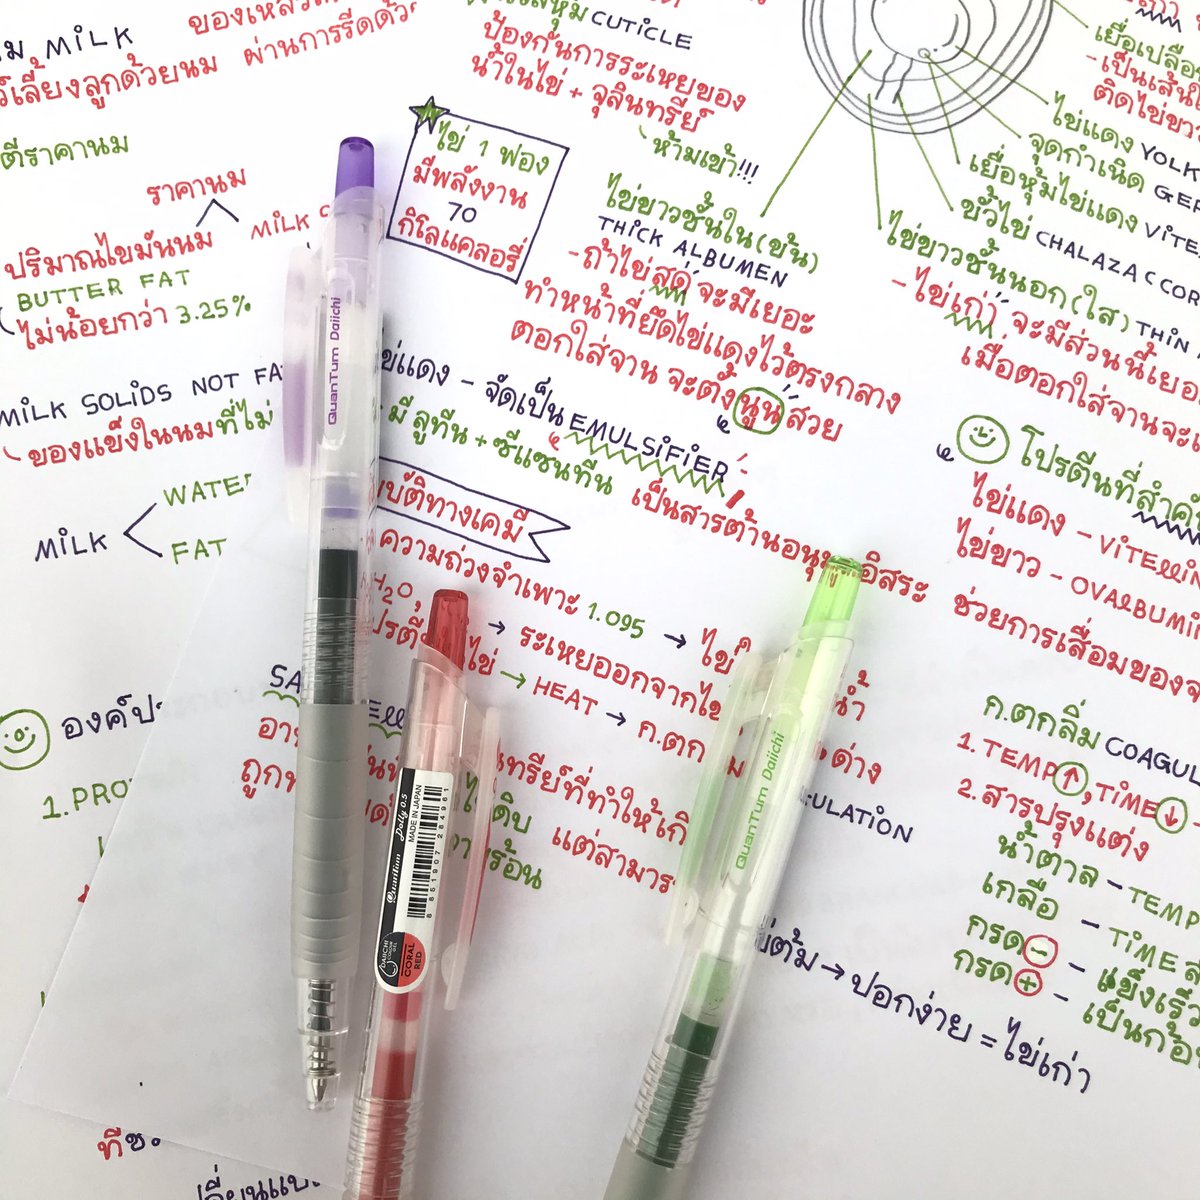 นม MILK
เลี้ยงลูกด้วยนม ผ่านการรีดด้ว
ตีราคานม
ราคานม
ปริมาณไขมันนม
MILK
BUTTER FAT
ไม่น้อยกว่า 3.25%
MILK SOLIDS NOT FA
ของแข็งในนมที่ไม่
MILK
WATE
FAT
องค์ป
1. PRO
CUTICLE
ป้องกันการระเหยของ
น้ำในไข่ + จุลินทรีย์
ห้ามเข้า!!!
ไข่ 1 ฟอง
มีพลังงาน
70
กิโลแคลอรี่
ไข่ขาวชั้นใน (ข้น)
THICK ALBUMEN
-ถ้าไข่สด จะมีเยอะ
ทำหน้าที่ยึดไข่แดงไว้ตรงกลาง
ตอกใส่จาน จะตั้งนูนสวย
ไข่แดง - จัดเป็น EMULSIFIER
มี ลูทีน + ซีแซนทีน เป็นสารต้านอนุมูลอิสระ ช่วยการเสื่อมของจ
บัติทางเคมี
ความถ่วงจำเพาะ 1.095
H2O → ระเหยออกจากไข → ไข่
ไข่ → HEAT → ค.ตก
ULATION
อินทรีย์ที่ทำให้เกิ
แต่สามาร
ไข่ต้ม → ปอกง่าย = ไข่เก่า
เยื่อเปลือก
-เป็นเส้นใ
ติดไข่ขาว
ไข่แดง YOLK
จุดกำเนิด GER
เยื่อหุ้มไข่แดง VITE
ขั้วไข่ CHALAZA (COR
ไข่ขาวชั้นนอก (ใส) THIN
-ไข่เก่า จะมีส่วนนี้เยอ
เมื่อตอกใส่จานจะ
โปรตีนที่สำคั
ไข่แดง - VITELLIN
ไข่ขาว - OVALBUMI
ค.ตกลิ่ม COAGUL
1. TEMP ↑, TIME ↓
2. สารปรุงแต่ง
น้ำตาล - TEMP
เกลือ - TIME
กรด - - แข็งเร็ว
กรด + - เป็นก้อ
QuanTum Daiichi
QuanTum Daiichi
QuanTum
Dolly 0.5
MADE IN JAPAN
8 851907 284961
DAIICHI
COLOUR
GEL
CORAL
RED